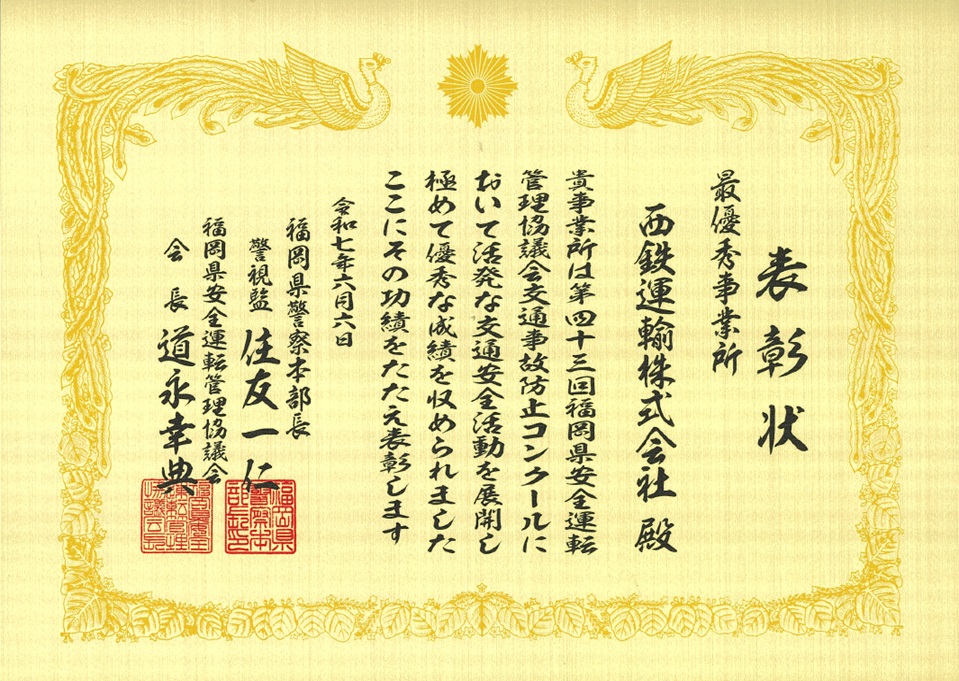 表彰状
最優秀事業所
西鉄運輸株式会社 殿
貴事業所は第四十三回福岡県安全運転
管理協議会交通事故防止コンクールに
おいて活発な交通安全活動を展開し
極めて優秀な成績を収められました
ここにその功績をたたえ表彰します
令和七年六月六日
福岡県警察本部長
警視監 住友一仁
福岡県安全運転管理協議会
会長 道永幸典
福岡県
警察本
部長印